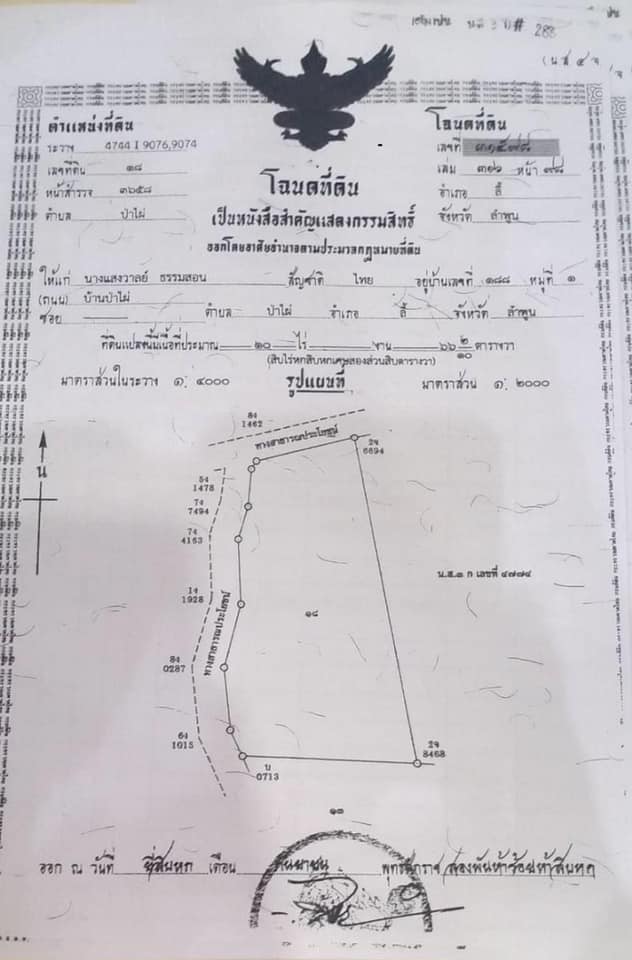 288
(น ส ๔ จ
ตำแหน่งที่ดิน
ระวาง 4744 I 9076,9074
เลขที่ดิน ๑๘
หน้าสำรวจ ๓๖๕๘
ตำบล ป่าไผ่
โฉนดที่ดิน
เลขที่
เล่ม ๓๑๖ หน้า ๙๘
อำเภอ ลี้
จังหวัด ลำพูน
โฉนดที่ดิน
เป็นหนังสือสำคัญแสดงกรรมสิทธิ์
ออกโดยอาศัยอำนาจตามประมวลกฎหมายที่ดิน
ให้แก่ นางแสงวาลย์ ธรรมสอน สัญชาติ ไทย อยู่บ้านเลขที่ ๑๘๘ หมู่ที่ ๑
(ถนน) บ้านป่าไผ่
ซอย ตำบล ป่าไผ่ อำเภอ ลี้ จังหวัด ลำพูน
ที่ดินแปลงนี้มีเนื้อที่ประมาณ ๑๐ ไร่ งาน ๖๖ ๒/๑๐ ตารางวา
(สิบไร่หกสิบหกเศษสองส่วนสิบตารางวา)
มาตราส่วนในระวาง ๑: ๔๐๐๐ รูปแผนที่ มาตราส่วน ๑: ๒๐๐๐
84
1462
ทางสาธารณประโยชน์
2จ
6694
น
54
1478
74
7494
74
4163
น.ส.๓ ก เลขที่ ๔๗๗๔
14
1928
๑๘
ทางสาธารณประโยชน์
84
0287
64
1015
บ
0713
2จ
8468
๑๓
ออก ณ วันที่ ยี่สิบหก เดือน กันยายน พุทธศักราช สองพันห้าร้อยห้าสิบหก